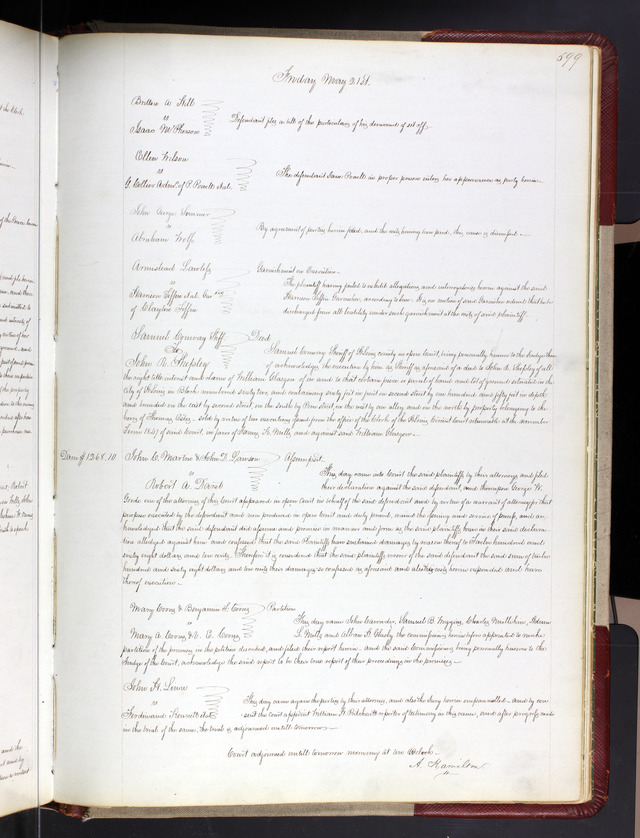 599
Friday May 21st.
Britton A. Hill
vs
Isaac McPherson
Defendant files a bill of the particulars of his demand of set off.
Ellen Wilson
vs
G. Collier Admr of P. Powell et al.
The defendant Powell in proper person enters his appearance as party herein.
vs
Abraham Wolf
By agreement of parties herein filed, and the costs having been paid, this cause is dismissed.
Armistead Lawless
vs
of Clayton Tiffin
Garnishment on Execution
The plaintiff having failed to exhibit allegations and interrogatories herein against the said
Harrison Tiffin Garnishee, according to law. It is on motion of said Garnishee ordered that he be
discharged from all liability under said garnishment at the costs of said plaintiff.
Samuel Conway Shff
To
John R. Shepley
Deed
Samuel Conway Sheriff of St Louis county in open Court, being personally known to the Judge thereof
acknowledges the execution by him as Sheriff as aforesaid of a deed to John R. Shepley of all
the right title interest and claim of William Glasgow of in and to that certain piece or parcel of land and lot of ground situated in the
City of St Louis in Block numbered seventy two, and containing sixty feet in front on second street by one hundred and fifty feet in depth
and bounded on the east by second street, on the south by Pine street, on the west by an alley and on the north by property belonging to the
heirs of Thomas sold by virtue of two executions issued from the office of the Clerk of the St Louis Circuit Court returnable at the
Term 1847 of said Court, in favor of and against said William Glasgow.
Dam $1268.10
John C. Marlow & John D. Pearson
vs
Robert A. David
Assumpsit
This day came into Court the said plaintiffs by their attorney and filed
their declaration against the said defendant, and thereupon George W.
one of the attorneys of this Court appeared in open Court in behalf of the said defendant and by virtue of a warrant of attorney for that
purpose executed by the defendant and now produced in open Court and duly proved, waived the issuing and service of process, and
knowledged that the said defendant did assume and promise in manner and form as the said plaintiffs have in their said declara-
tion alleged against him and confessed that the said Plaintiffs have sustained damages by reason thereof to Twelve hundred and
sixty eight dollars and ten cents. Therefore it is considered that the said plaintiffs recover of the said defendant the said sum of twelve
hundred and sixty eight dollars and ten cents their damages so confessed as aforesaid and also their costs herein expended and have
thereof execution.
vs
Partition
This day came John Cavender, Samuel B. Wiggins, Charles Mullikin, Adam
L. Mills and the commissioners heretofore appointed to make
partition of the premises in the petition described, and filed their report herein. and the said Commissioners being personally known to the
Judge of the Court, acknowledge the said report to be their true report of their proceedings in the premises.
John H. Lowe
vs
Ferdinand Kennett et al
This day came again the parties by their attorneys, and also the Jury herein empannelled and by con-
sent the Court appoint William reporter of testimony in this cause, and after progress made
in the trial of the same, the trial is adjourned untill tomorrow.
Court adjourned untill tomorrow morning at ten Oclock.
A. Hamilton